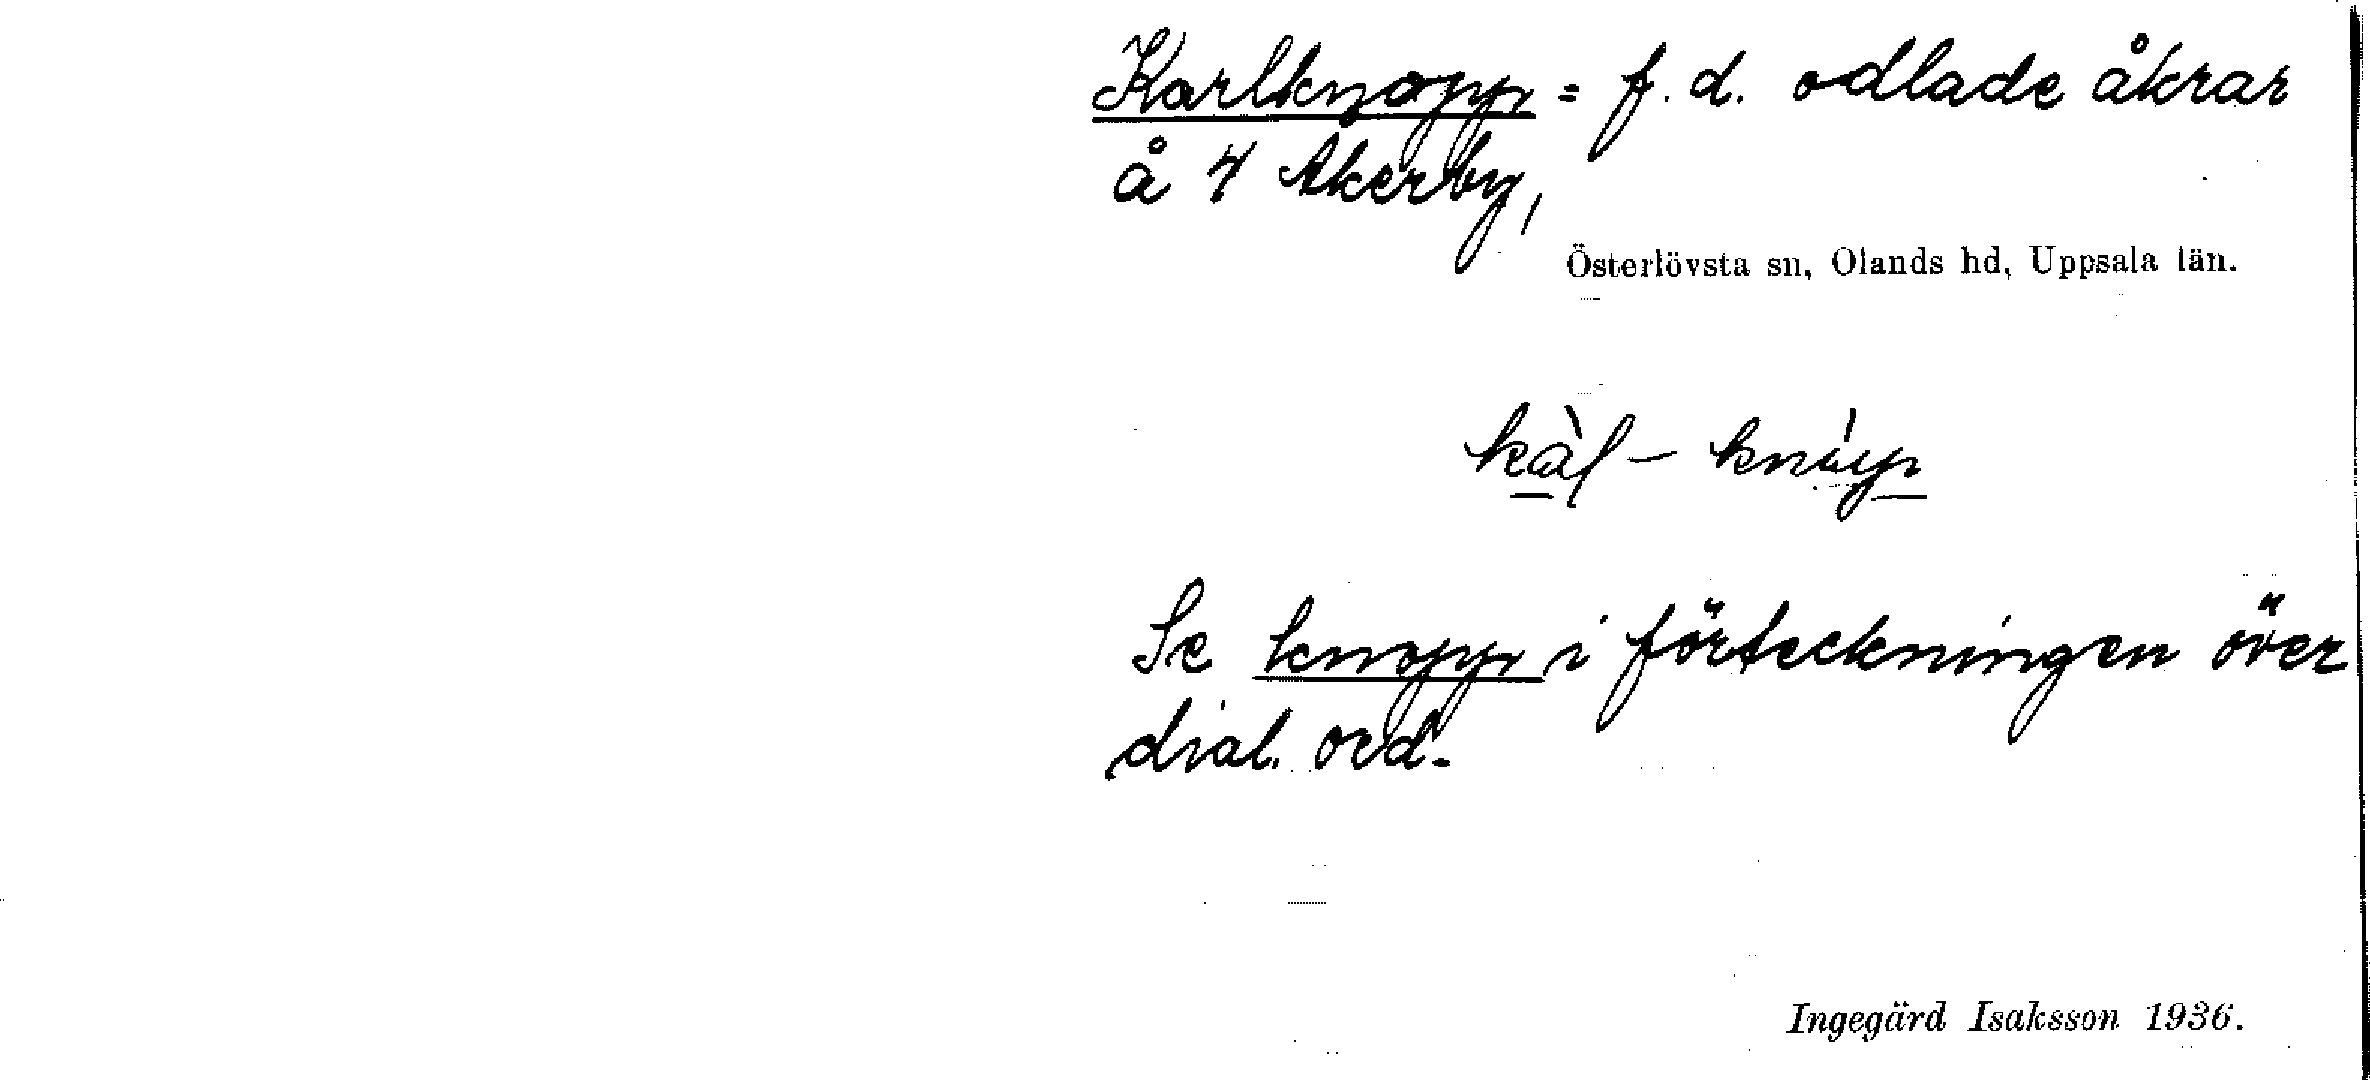 Karlknopp = f. d. odlade åkrar
å 4 Åkerby,
Österlövsta sn, Olands hd, Uppsala län.
Se knopp i förteckningen över
dial. ord.
Ingegärd Isaksson 1936.